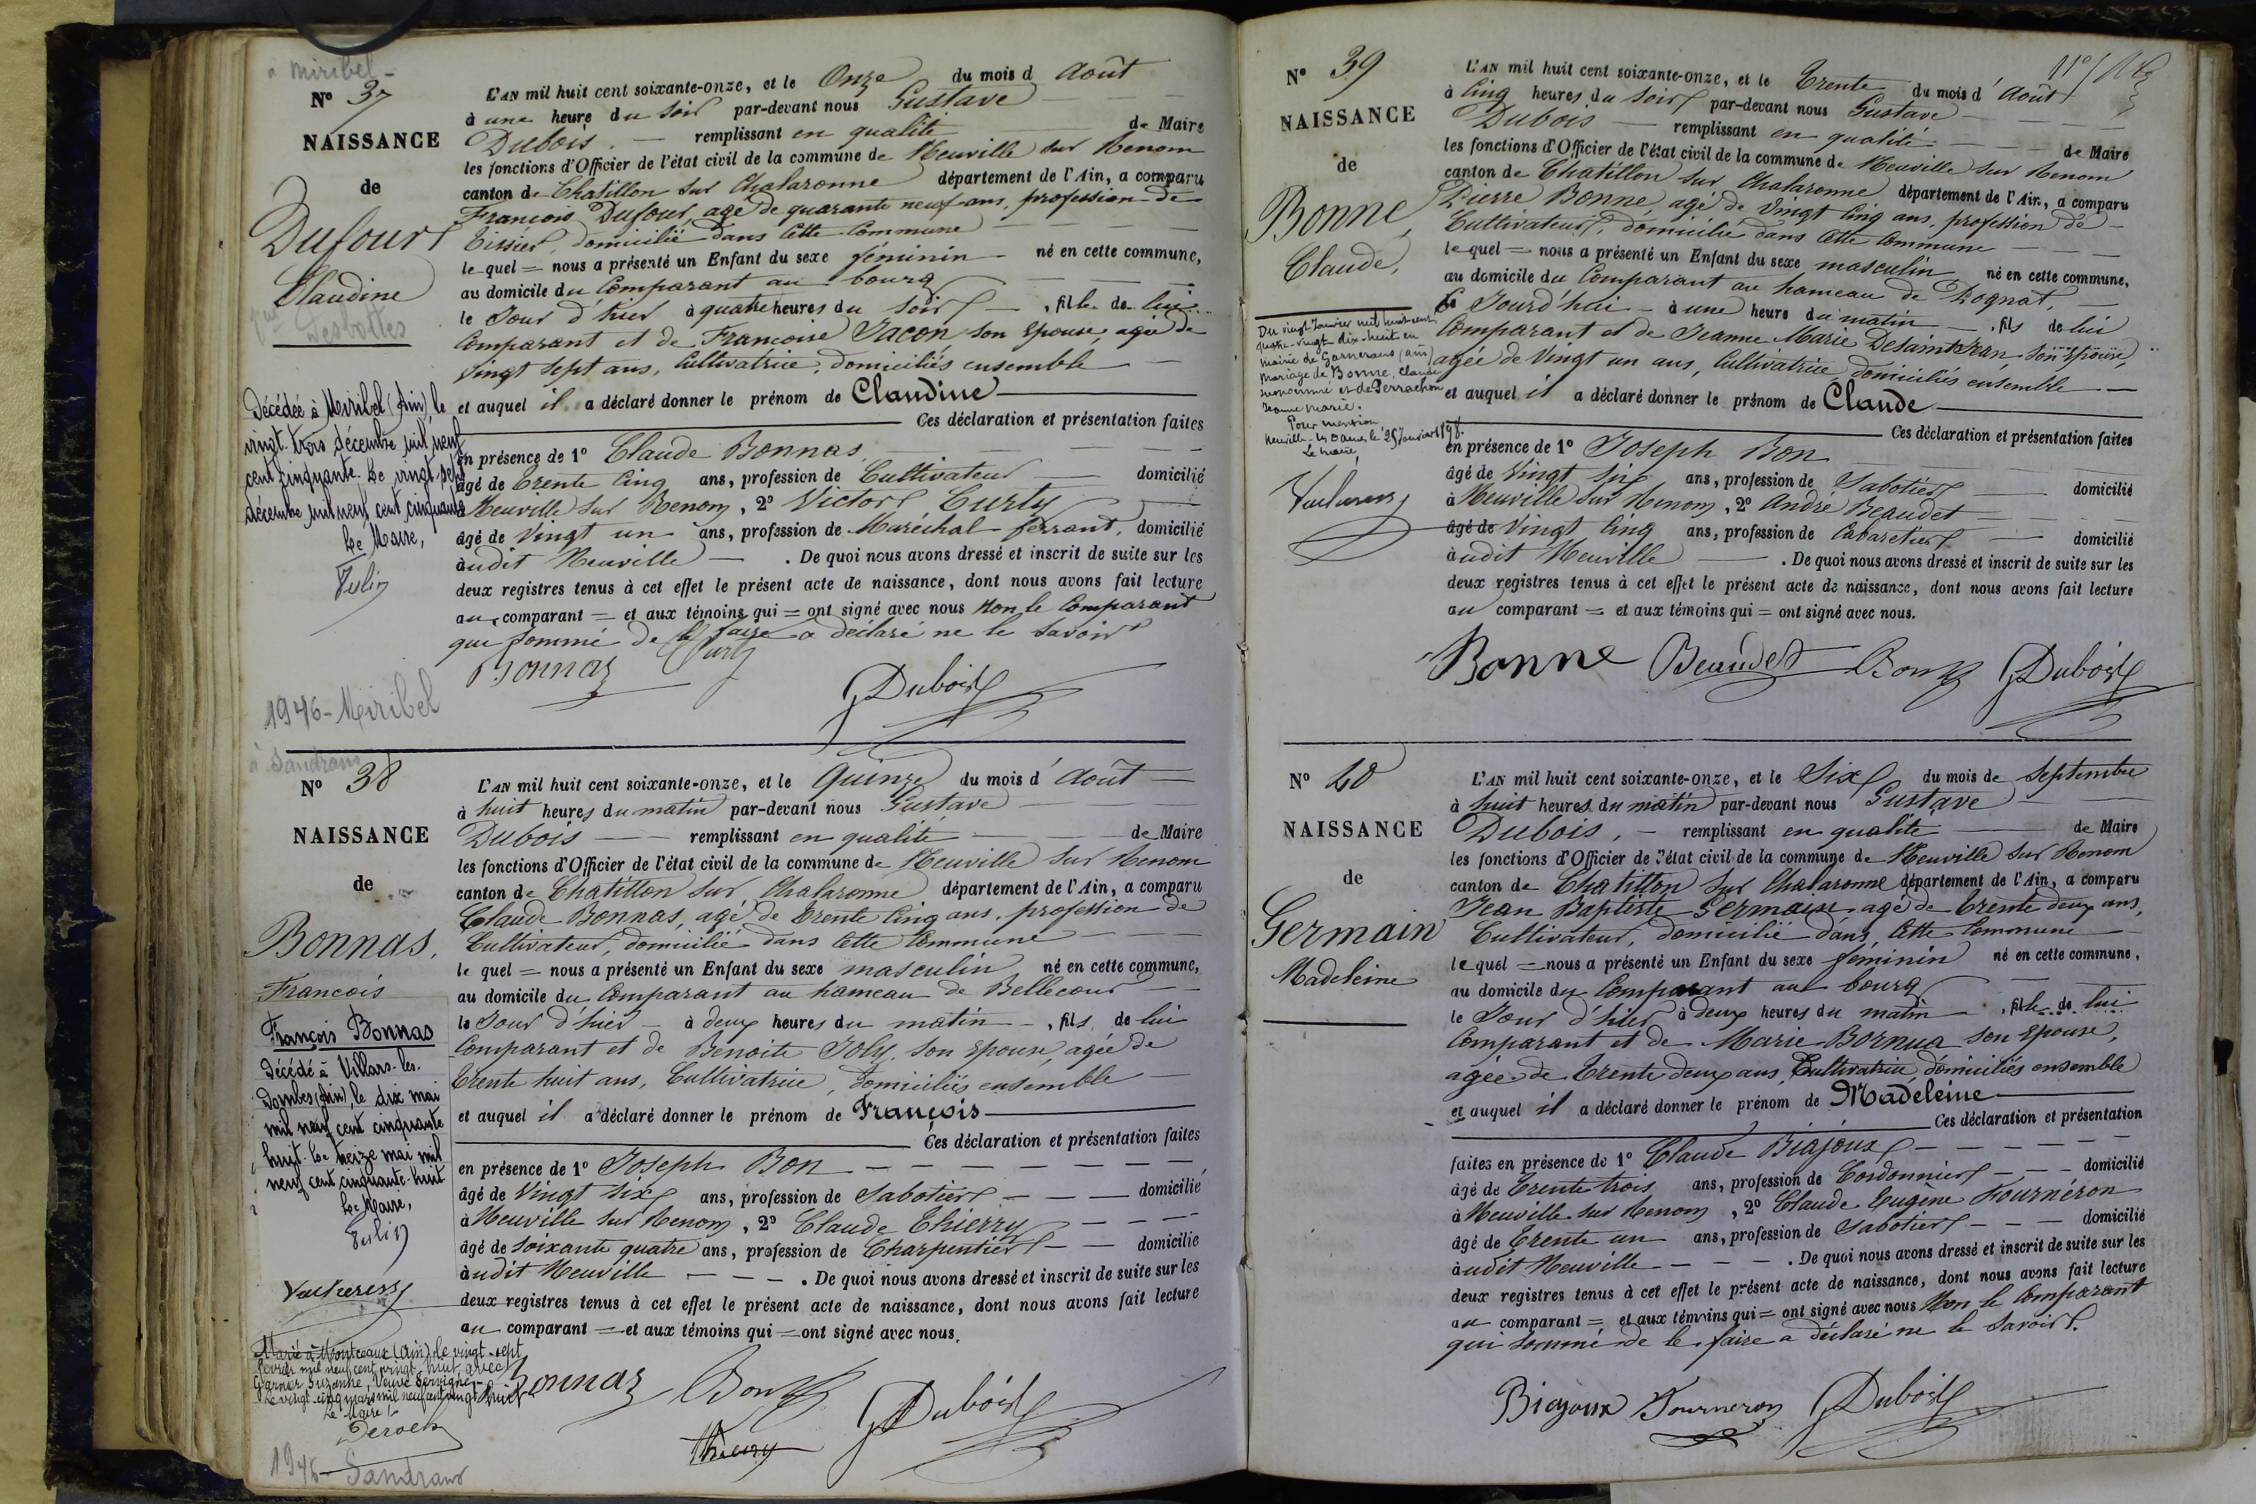 à Miribel -
Nº 37
NAISSANCE
de
Dufour
Claudine
Desbottes
Décédée à Miribel (Ain), le
vingt-trois décembre mil neuf
cent cinquante. Le vingt-sept
décembre mil neuf cent cinquante
Le Maire,
1946 - Miribel
L'AN mil huit cent soixante-onze, et le Onze du mois d Août
à une heure du soir par-devant nous Gustave
Dubois remplissant en qualité de Maire
les fonctions d'Officier de l'état civil de la commune de Neuville sur Renom
canton de Chatillon sur Chalaronne département de l'Ain, a comparu
François Dufour, agé de quarante neuf ans, profession de
tissier, domicilié dans cette commune
le quel = nous a présenté un Enfant du sexe féminin né en cette commune,
au domicile du Comparant au bourg
le Jour d'hier à quatre heures du soir, fille de lui
Comparant et de Françoise Jacon son épouse, agée de
vingt sept ans, Cultivatrice, domiciliés ensemble
et auquel il a déclaré donner le prénom de Claudine
Ces déclaration et présentation faites
en présence de 1º Claude Bonnas
âgé de trente cinq ans, profession de Cultivateur domicilié
à Neuville sur Renom, 2º Victor Curty
âgé de vingt un ans, profession de Maréchal-ferrant, domicilié
àudit Neuville. De quoi nous avons dressé et inscrit de suite sur les
deux registres tenus à cet effet le présent acte de naissance, dont nous avons fait lecture
au comparant = et aux témoins qui = ont signé avec nous Non le Comparant
qui sommé de le faire a déclaré ne le savoir
Bonnas Curty
GDubois
à Sandrans
Nº 38
NAISSANCE
de
Bonnas,
François
François Bonnas
Décédé à Villars-les-
Dombes (Ain), le dix mai
mil neuf cent cinquante
huit. Le treize mai mil
neuf cent cinquante-huit
Le Maire,
Marié à Montceaux (Ain) le vingt-sept
février mil neuf cent vingt huit avec
Garnier Suzanne, Veuve
Le vingt-cinq mars mil neuf cent vingt huit
Le Maire
1946 - Sandrans
L'AN mil huit cent soixante-onze, et le Quinze du mois d' Août
à huit heures du matin par-devant nous Gustave
Dubois remplissant en qualité de Maire
les fonctions d'Officier de l'état civil de la commune de Neuville sur Renom
canton de Chatillon sur Chalaronne département de l'Ain, a comparu
Claude Bonnas, agé de trente cinq ans, profession de
Cultivateur, domicilié dans cette Commune
le quel = nous a présenté un Enfant du sexe masculin né en cette commune,
au domicile du Comparant au hameau de Bellecour
le Jour d'hier à deux heures du matin, fils de lui
Comparant et de Benoite Joly, son épouse, agée de
trente huit ans, Cultivatrice, domiciliés ensemble
et auquel il a déclaré donner le prénom de François
Ces déclaration et présentation faites
en présence de 1º Joseph Bon
âgé de vingt six ans, profession de Sabotier domicilié
à Neuville sur Renom, 2º Claude Thierry
âgé de soixante quatre ans, profession de Charpentier domicilié
àudit Neuville. De quoi nous avons dressé et inscrit de suite sur les
deux registres tenus à cet effet le présent acte de naissance, dont nous avons fait lecture
au comparant = et aux témoins qui = ont signé avec nous.
Bonnas Bon GDubois
Thierry
Nº 39
NAISSANCE
de
Bonne,
Claude,
Du vingt Janvier mil huit cent
quatre-vingt dix-huit en
mairie de Garnerans (Ain)
mariage de Bonne, Claude
susnommé et de Perrachon
Jeanne Marie.
Pour mention
Neuville-les-Dames le 25 Janvier 1898.
Le maire,
L'AN mil huit cent soixante-onze, et le Trente du mois d' Août
à cinq heures du soir par-devant nous Gustave
Dubois remplissant en qualité de Maire
les fonctions d'Officier de l'état civil de la commune de Neuville sur Renom
canton de Chatillon sur Chalaronne département de l'Ain, a comparu
Pierre Bonne, agé de vingt cinq ans, profession de
Cultivateur, domicilié dans cette Commune
le quel = nous a présenté un Enfant du sexe masculin né en cette commune,
au domicile du Comparant au hameau de Rognat,
le Jourd'hui à une heure du matin, fils de lui
Comparant et de Jeanne Marie Desaint Jean son épouse,
agée de vingt un ans, Cultivatrice, domiciliés ensemble
et auquel il a déclaré donner le prénom de Claude
Ces déclaration et présentation faites
en présence de 1º Joseph Bon
âgé de vingt six ans, profession de Sabotier domicilié
à Neuville sur Renom, 2º André Beaudet
âgé de vingt cinq ans, profession de Cabaretier domicilié
àudit Neuville. De quoi nous avons dressé et inscrit de suite sur les
deux registres tenus à cet effet le présent acte de naissance, dont nous avons fait lecture
au comparant = et aux témoins qui = ont signé avec nous.
Bonne Beaudet Bon GDubois
Nº 40
NAISSANCE
de
Germain
Madeleine
L'AN mil huit cent soixante-onze, et le Six du mois de Septembre
à huit heures du matin par-devant nous Gustave
Dubois, remplissant en qualité de Maire
les fonctions d'Officier de l'état civil de la commune de Neuville sur Renom
canton de Chatillon sur Chalaronne département de l'Ain, a comparu
Jean Baptiste Germain agé de trente deux ans,
Cultivateur, domicilié dans cette Commune
le quel = nous a présenté un Enfant du sexe féminin né en cette commune,
au domicile du Comparant au bourg
le Jour d'hier à deux heures du matin, fille de lui
Comparant et de Marie Bornua son épouse,
agée de trente deux ans, Cultivatrice, domiciliés ensemble
et auquel il a déclaré donner le prénom de Madeleine
Ces déclaration et présentation
faites en présence de 1º Claude Biajoux
âgé de trente trois ans, profession de Cordonnier domicilié
à Neuville sur Renom, 2º Claude Eugène Fournéron
âgé de trente un ans, profession de Sabotier domicilié
àudit Neuville. De quoi nous avons dressé et inscrit de suite sur les
deux registres tenus à cet effet le présent acte de naissance, dont nous avons fait lecture
au comparant = et aux témoins qui = ont signé avec nous Non le Comparant
qui sommé de le faire a déclaré ne le savoir.
Biajoux Fourneron GDubois